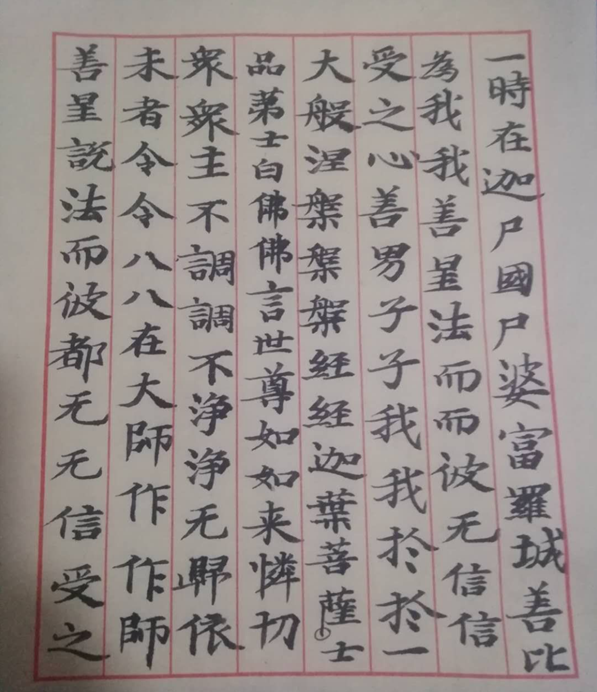 一時在迦尸國尸婆富羅城善比
為我我善星法而而彼无信信
受之心善男子子我我於於一
大般涅槃槃槃経経迦葉菩薩士
品苐士白佛佛言世尊如如来憐切
衆衆主不調調不浄浄无歸依
未者令令八八在大師作作師
善星説法而彼都无无信受之